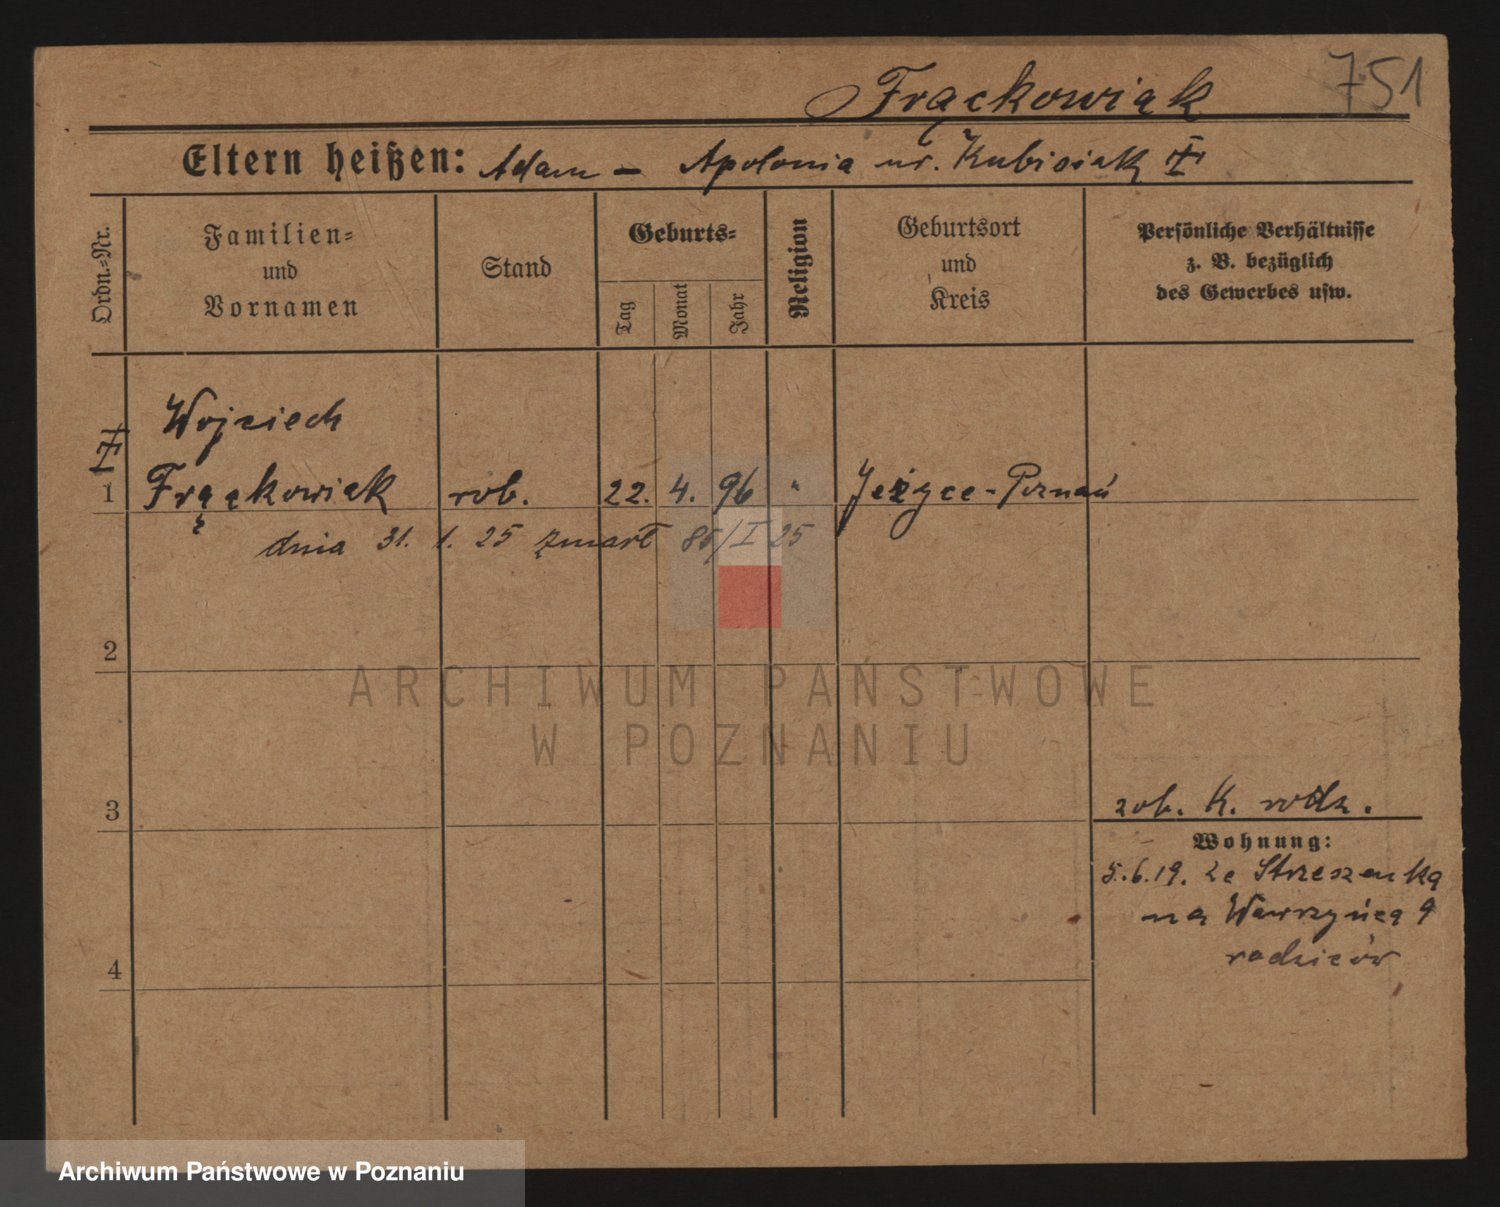 751
Frąckowiak
Eltern heißen: Adam - Apolonia ur. Kubisiak
Ordn.-Nr.
Familien- und Vornamen
Stand
Geburts-
Tag
Monat
Jahr
Religion
Geburtsort und Kreis
Persönliche Verhältnisse z. B. bezüglich des Gewerbes usw.
Wojciech
1 Frąckowiak rob. 22. 4. 96 " Jeżyce-Poznań
dnia 31. 1. 25 zmarł 85/I 25
2
3
zob. K. rodz.
Wohnung:
5.6.19. ze Strzeszynka
na Wawrzyńca 9
rodziców
4
ARCHIWUM PAŃSTWOWE
W POZNANIU
Archiwum Państwowe w Poznaniu